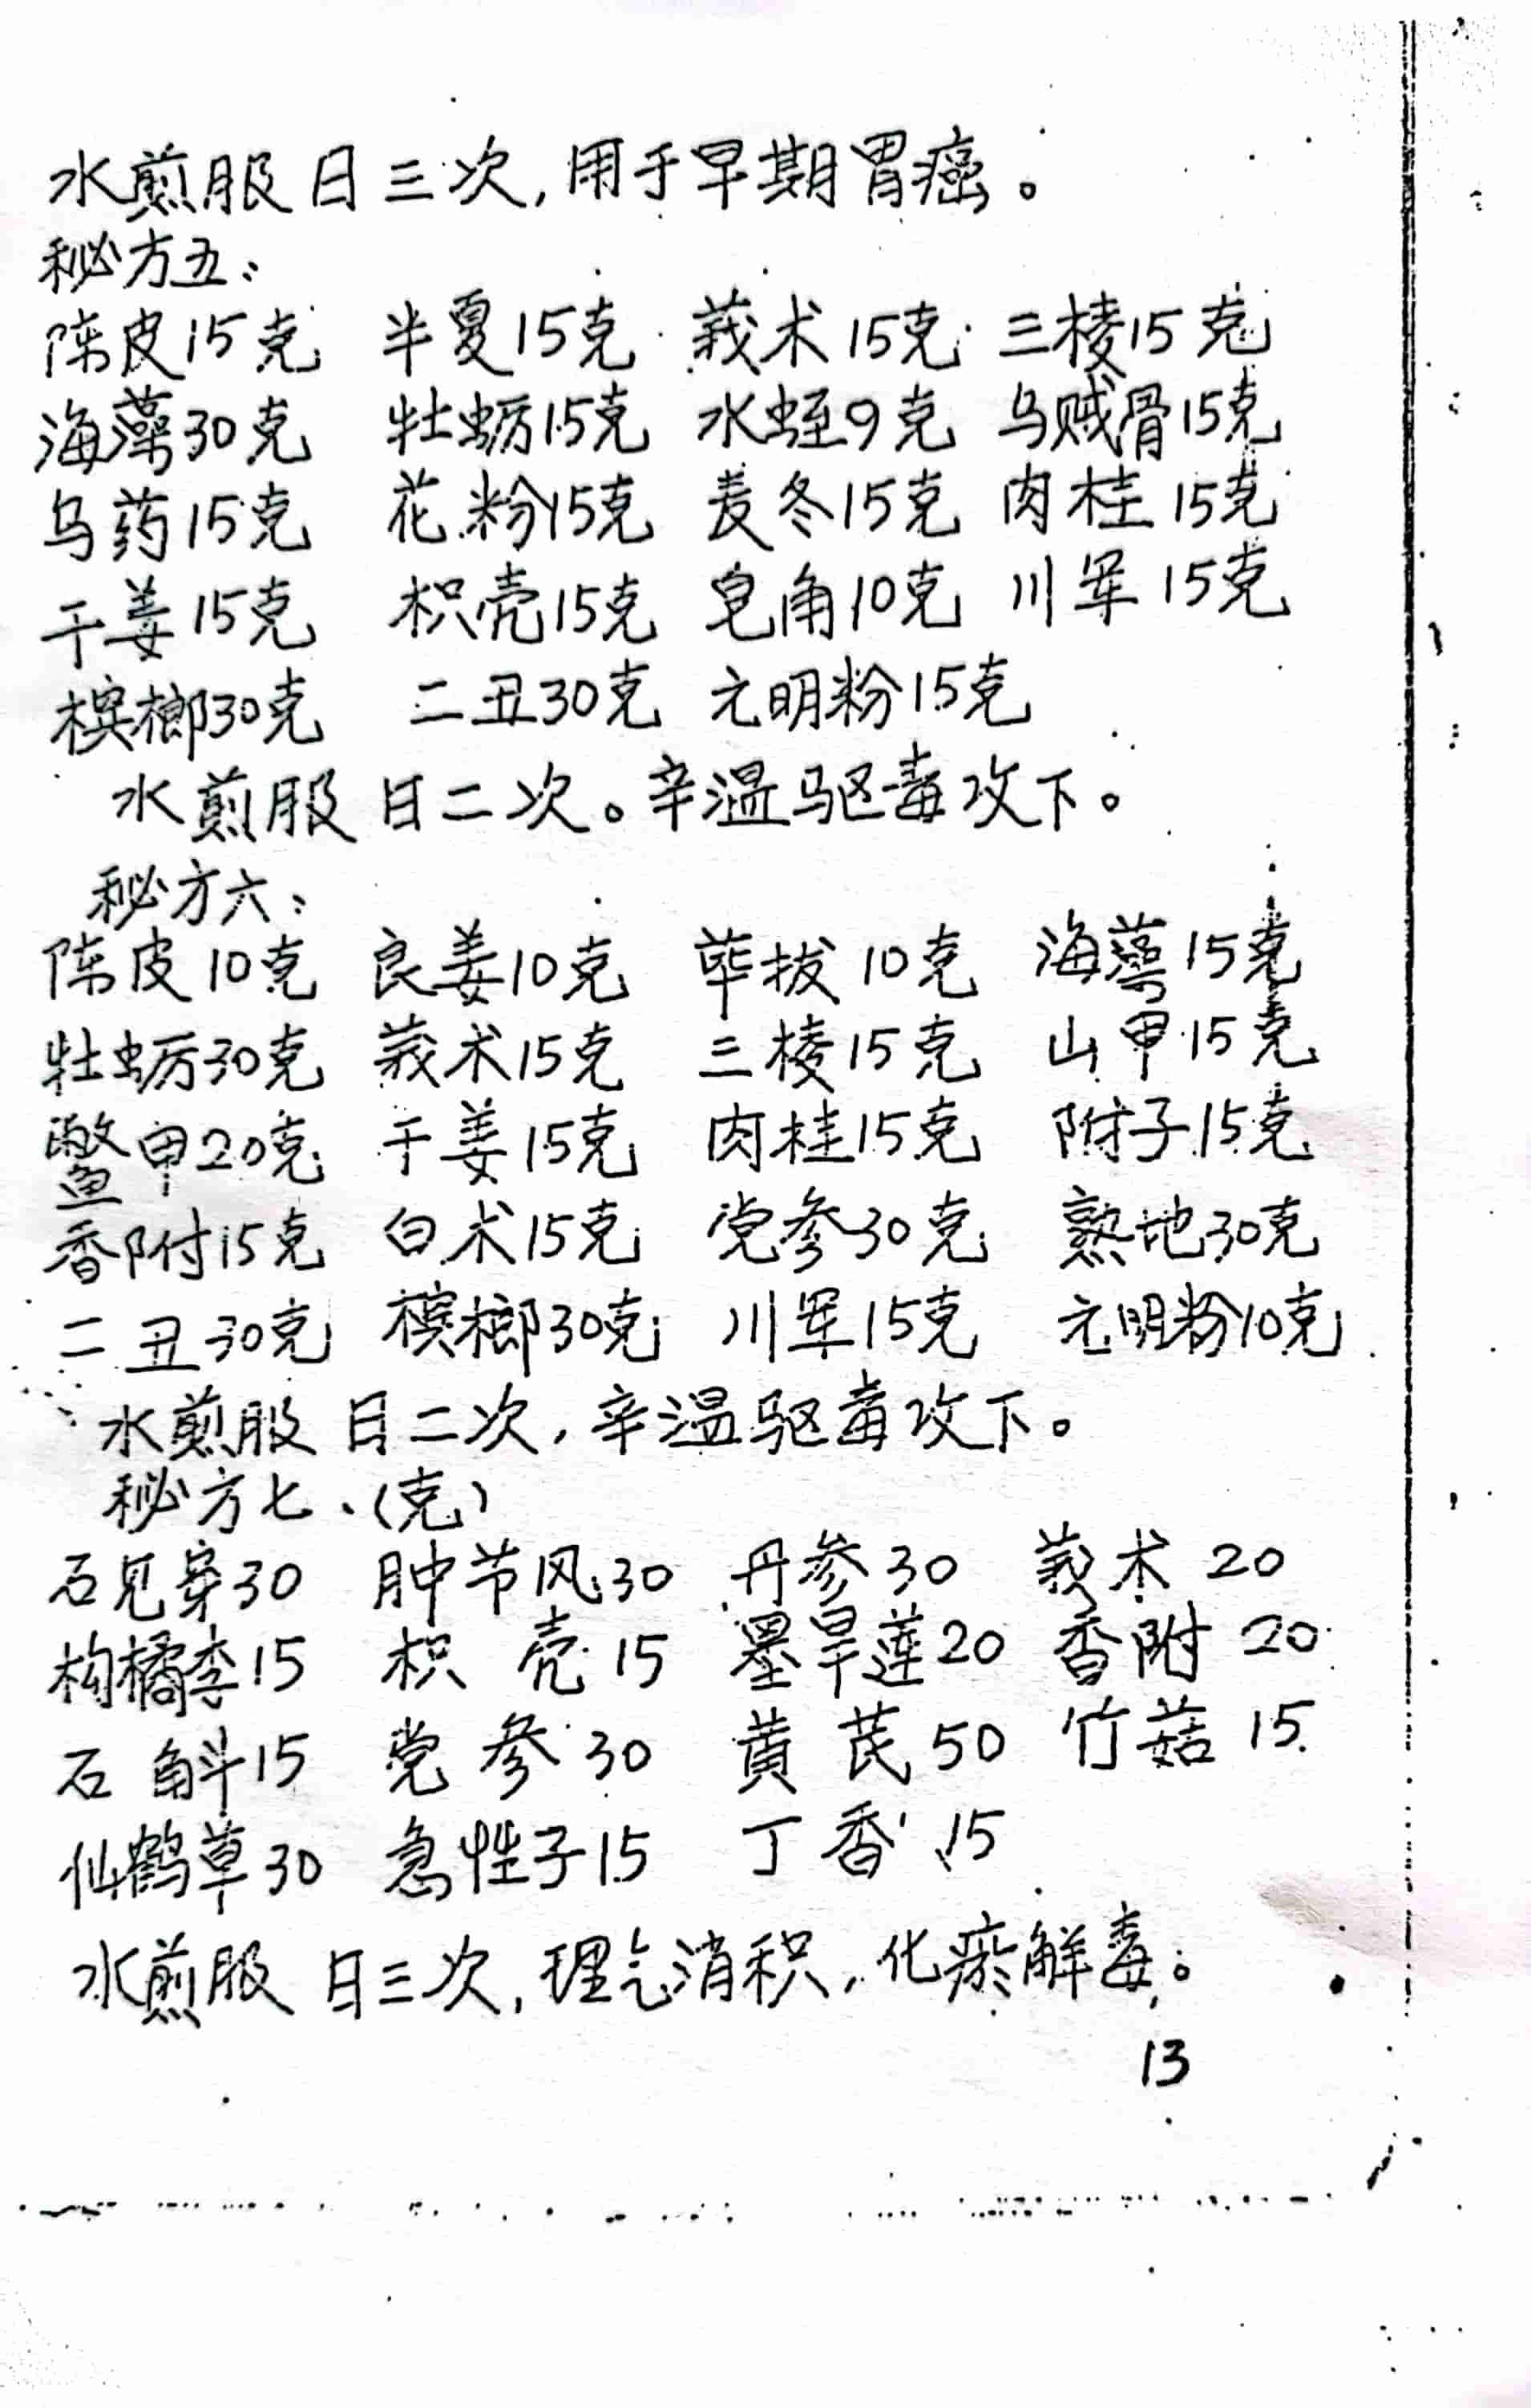 水煎服日三次,用于早期胃癌。
秘方五:
陈皮15克 半夏15克 莪术15克 三棱15克
海藻30克 牡蛎15克 水蛭9克 乌贼骨15克
乌药15克 花粉15克 麦冬15克 肉桂15克
干姜15克 枳壳15克 皂角10克 川军15克
槟榔30克 二丑30克 元明粉15克
水煎服 日二次。辛温驱毒攻下。
秘方六:
陈皮10克 良姜10克 荜拔10克 海藻15克
牡蛎30克 莪术15克 三棱15克 山甲15克
鳖甲20克 干姜15克 肉桂15克 附子15克
香附15克 白术15克 党参30克 熟地30克
二丑30克 槟榔30克 川军15克 元明粉10克
水煎服 日二次,辛温驱毒攻下。
秘方七、(克)
石见穿30 肿节风30 丹参30 莪术20
枸橘李15 枳壳15 墨旱莲20 香附20
石斛15 党参30 黄芪50 竹菇15
仙鹤草30 急性子15 丁香15
水煎服 日三次,理气消积,化瘀解毒。
13